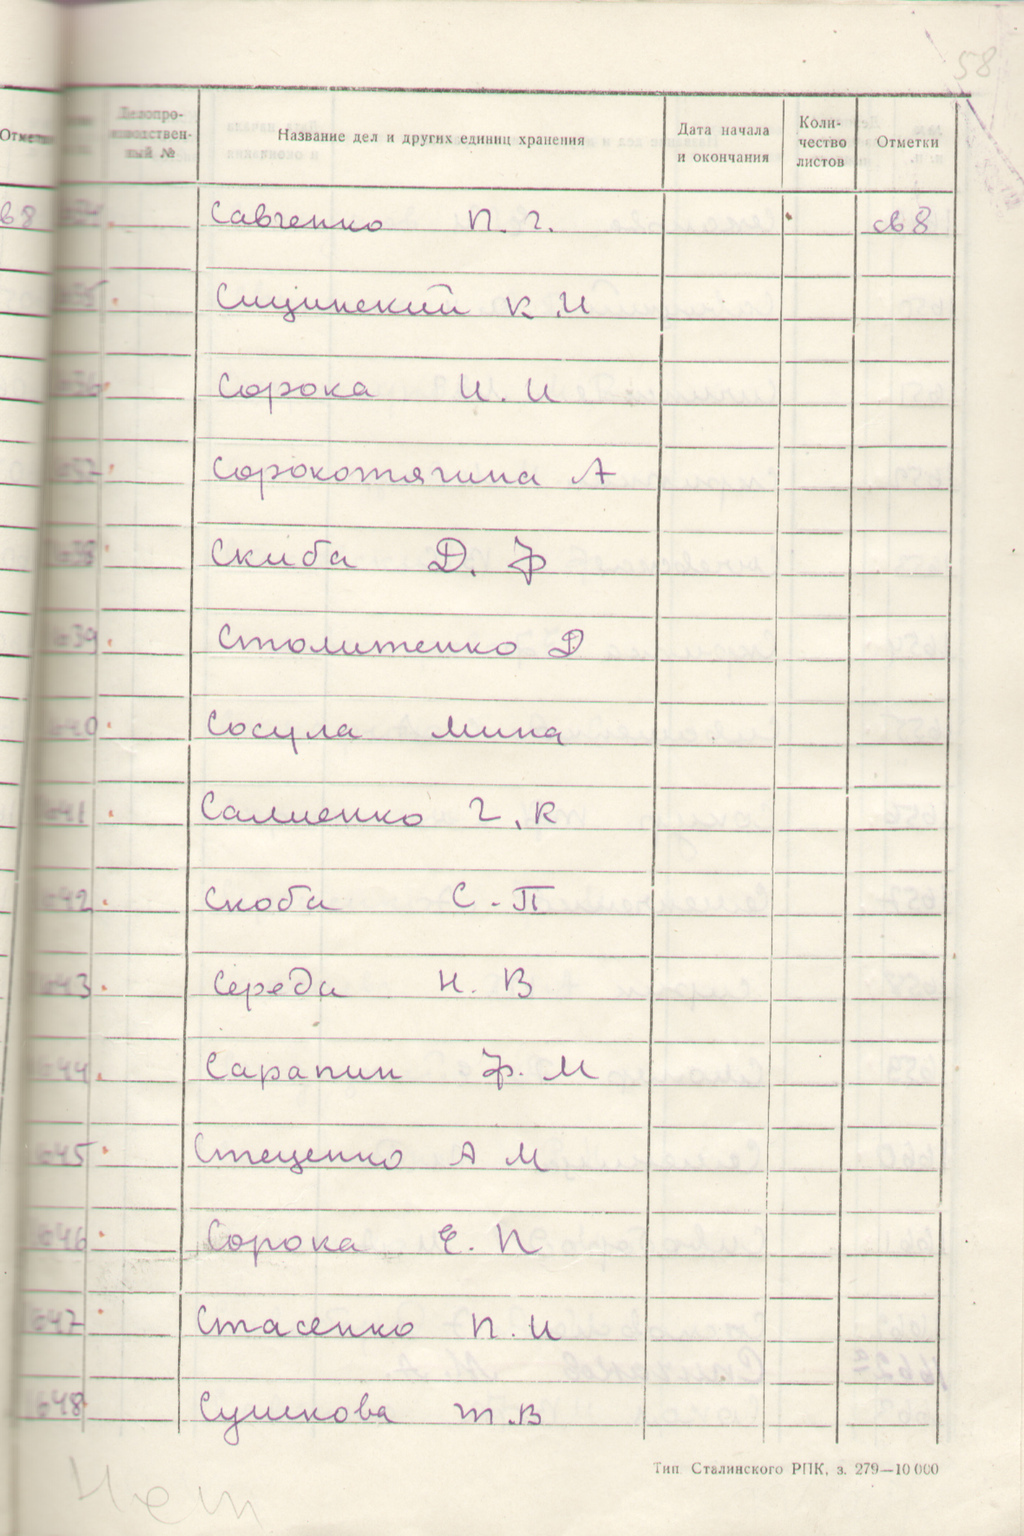 58
Отметки
Делопро-
изводствен-
ный №
Название дел и других единиц хранения
Дата начала
и окончания
Коли-
чество
листов
Отметки
Савченко П. Г. св 8
Сищинский К. И
1636 Сорока И. И
1637 Сорокотягина А
1638 Скиба Д. Ф
1639 Столитенко Д
1640 Сосула Мина
1641 Салиенко Г. К
1642 Скоба С. П
1643 Середа Н. В
1644 Сарапин Ф. М
1645 Стеценко А М
1646 Сорока Е. П
1647 Стасенко П. И
1648 Сушкова Т. В
Тип. Сталинского РПК, з. 279—10 000
Нет